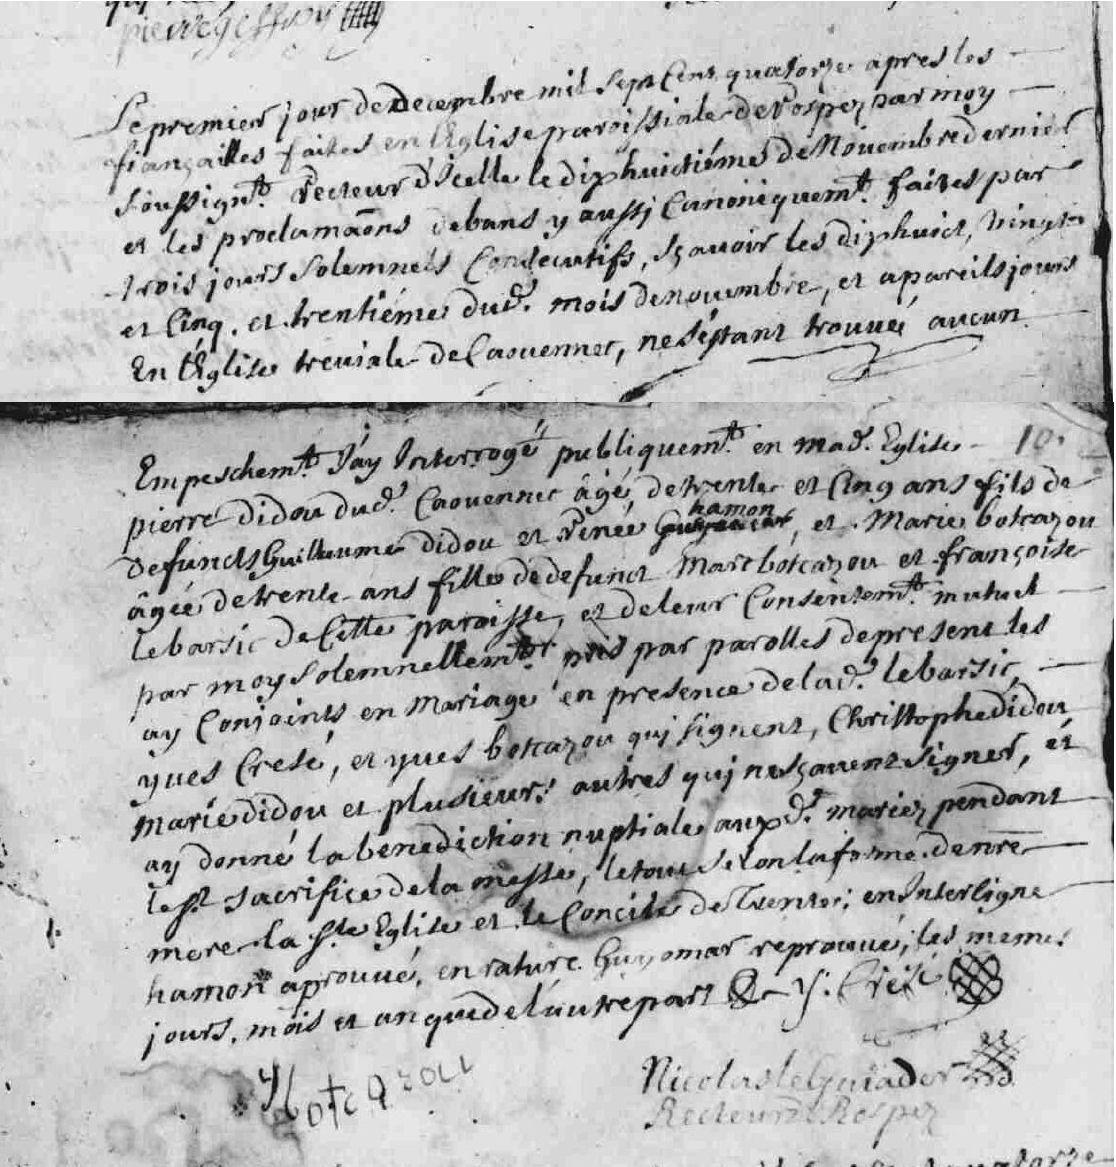 pierre geffroy
Le premier jour de Decembre mil Sept Cent quatorze apres les
fiançailles faites en l'Eglise paroissiale de Rospez par moy
soussignt. Recteur d'icelle le dixhuictiéme de Novembre dernier
et les proclamaōns de bans y aussj Canoniquemt. faites par
trois jours Solemnels Consecutifs, sçavoir les dixhuict, vingt
et Cinq, et trentiéme dud. mois de novembre, et a pareils jours
En l'Eglise treviale de Caouennec, ne s'éstant trouvé aucun
Empeschemt. J'ay Interrogé publiquemt. en mad. Eglise 10.
pierre didou dud. Caouennec âgé de trente et Cinq ans fils de
defuncts Guillaume didou et Renée hamon, et Marie botcazou
âgée de trente ans fille de defunct Marc botcazou et françoise
le barsic de Cette paroisse, et de leur Consentemt. mutuel
par moy Solemnellemt. pris par parolles de present les
ay Conjoints en mariage en presence de lad. le barsic,
yves Cresé, et yves botcazou quj signent, Christophe didou
marie didou et plusieurs autres quj ne sçavent signer, et
ay donné la benediction nuptiale auxd. mariez pendant
le st. sacrifice de la messe, le tout selon la forme de nre
mere la ste Eglise et le Concile de Trente; en Interligne
hamon aprouvé, en rature Guyomar reprouvé, les memes
jours, mois et an que de l'autre part y: Cresé
y Botcazou
Nicolas le Guiader
Recteur de Rospez